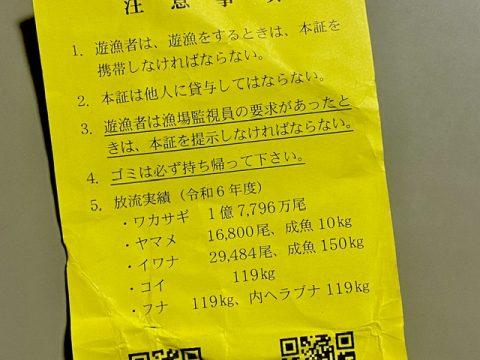 注 意 事 項
1. 遊漁者は、遊漁をするときは、本証を
携帯しなければならない。
2. 本証は他人に貸与してはならない。
3. 遊漁者は漁場監視員の要求があったと
きは、本証を提示しなければならない。
4. ゴミは必ず持ち帰って下さい。
5. 放流実績（令和6年度）
・ワカサギ 1億7,796万尾
・ヤマメ 16,800尾、成魚10kg
・イワナ 29,484尾、成魚150kg
・コイ 119kg
・フナ 119kg、内ヘラブナ119kg